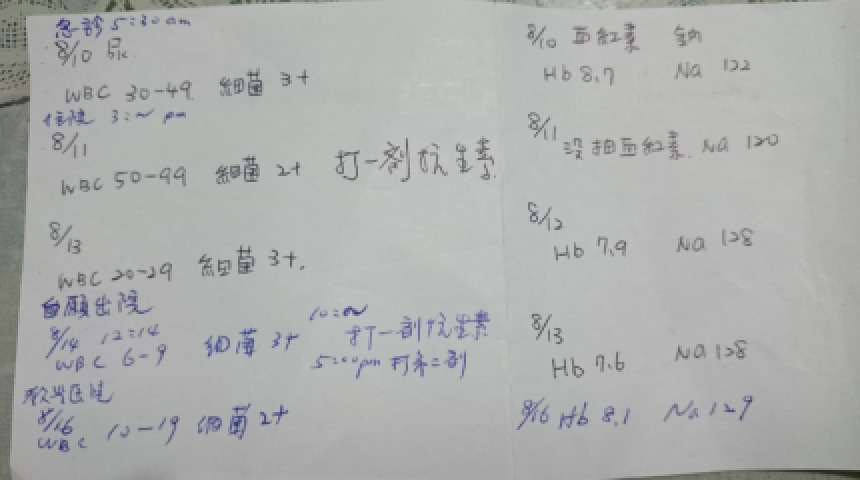 急診 5:30am
8/10 尿
WBC 30-49 細菌 3+
住院 3:~ pm
8/11
WBC 50-99 細菌 2+ 打一劑抗生素
8/13
WBC 20-29 細菌 3+.
自願出院
8/14 12:14 細菌 3+ 10:~ 打一劑抗生素
WBC 6-9 5:00pm 打第二劑
醫院
8/16 10-19 細菌 2+
WBC
8/10 血紅素 鈉
Hb 8.7 Na 122
8/11 沒抽血紅素. Na 120
8/12
Hb 7.9 Na 128
8/13
Hb 7.6 Na 128
8/16 Hb 8.1 Na 129